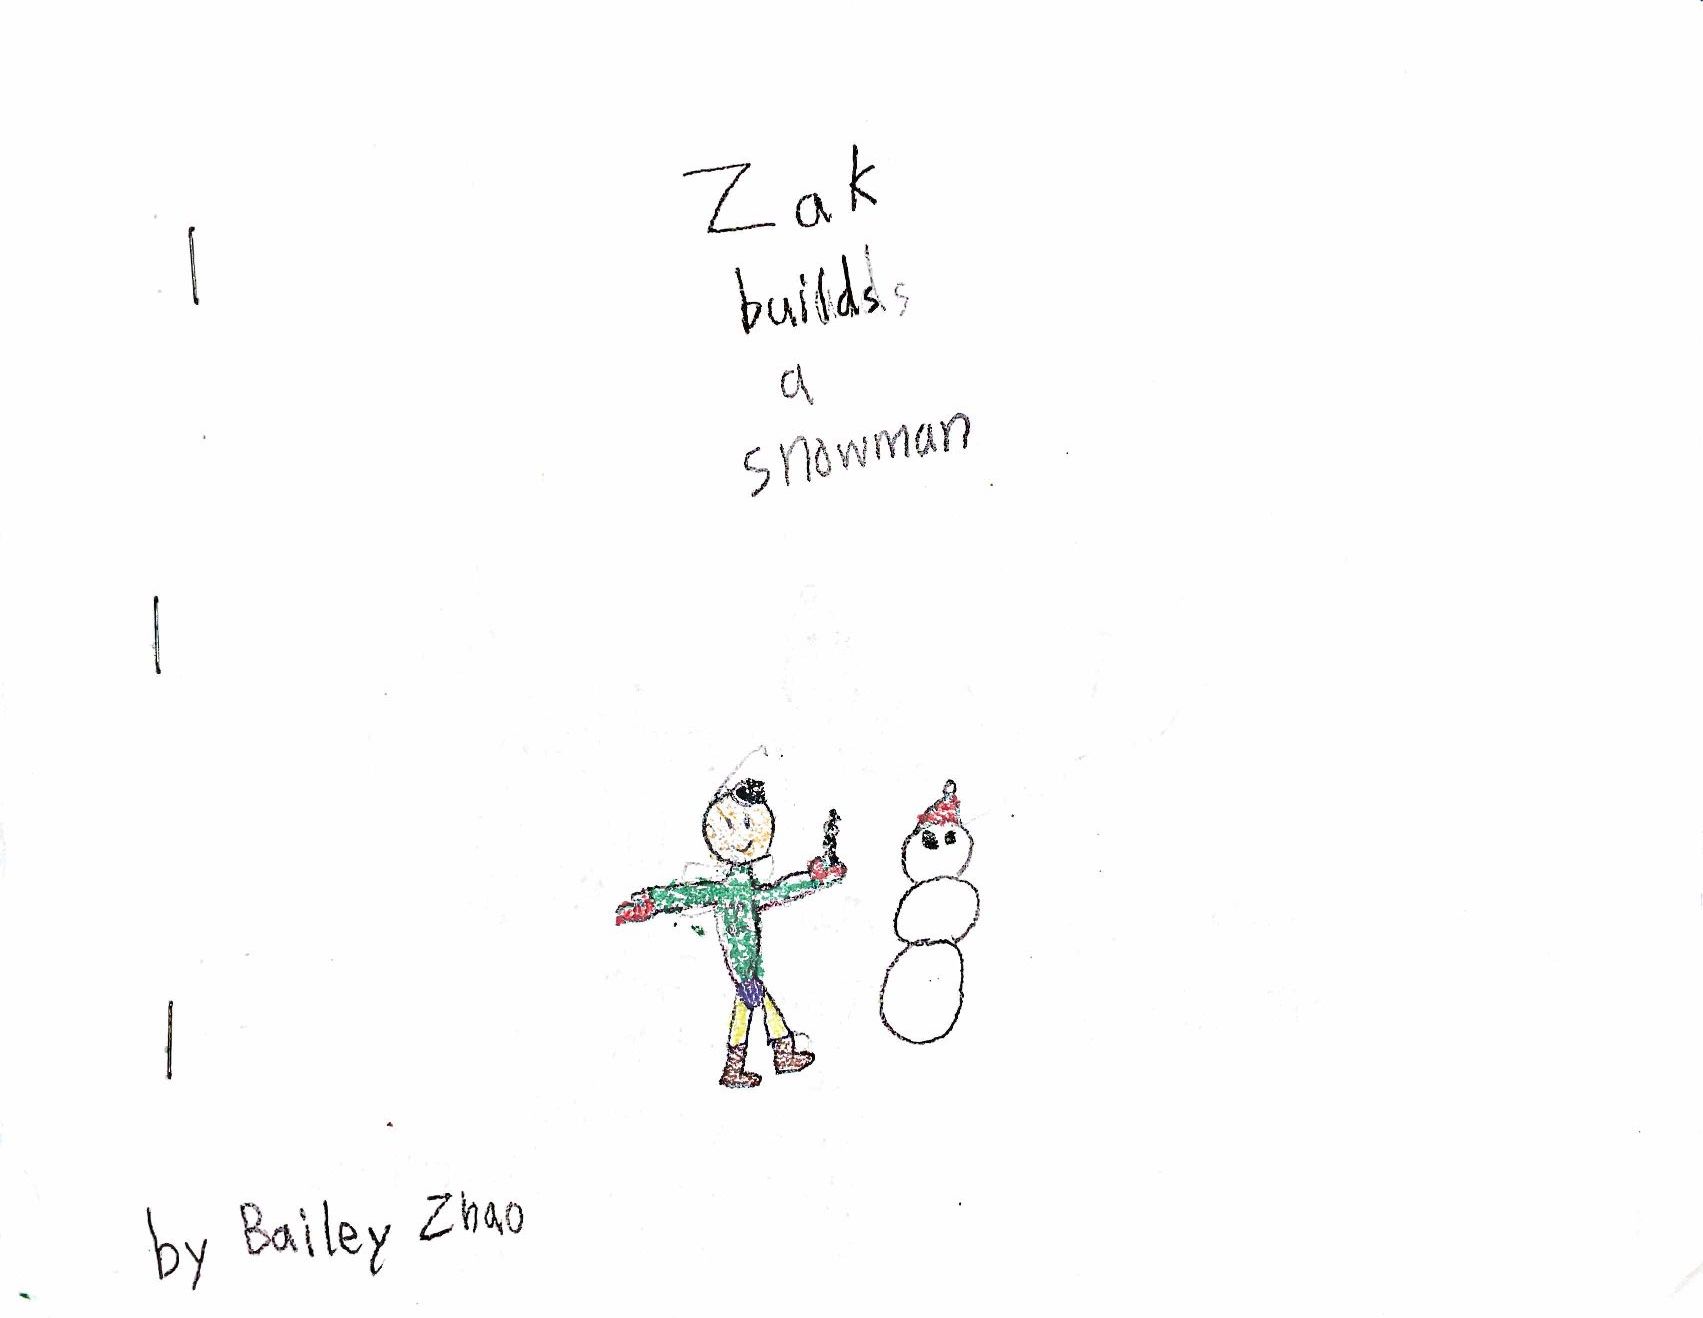 Zak
builds
a
snowman
by Bailey Zhao